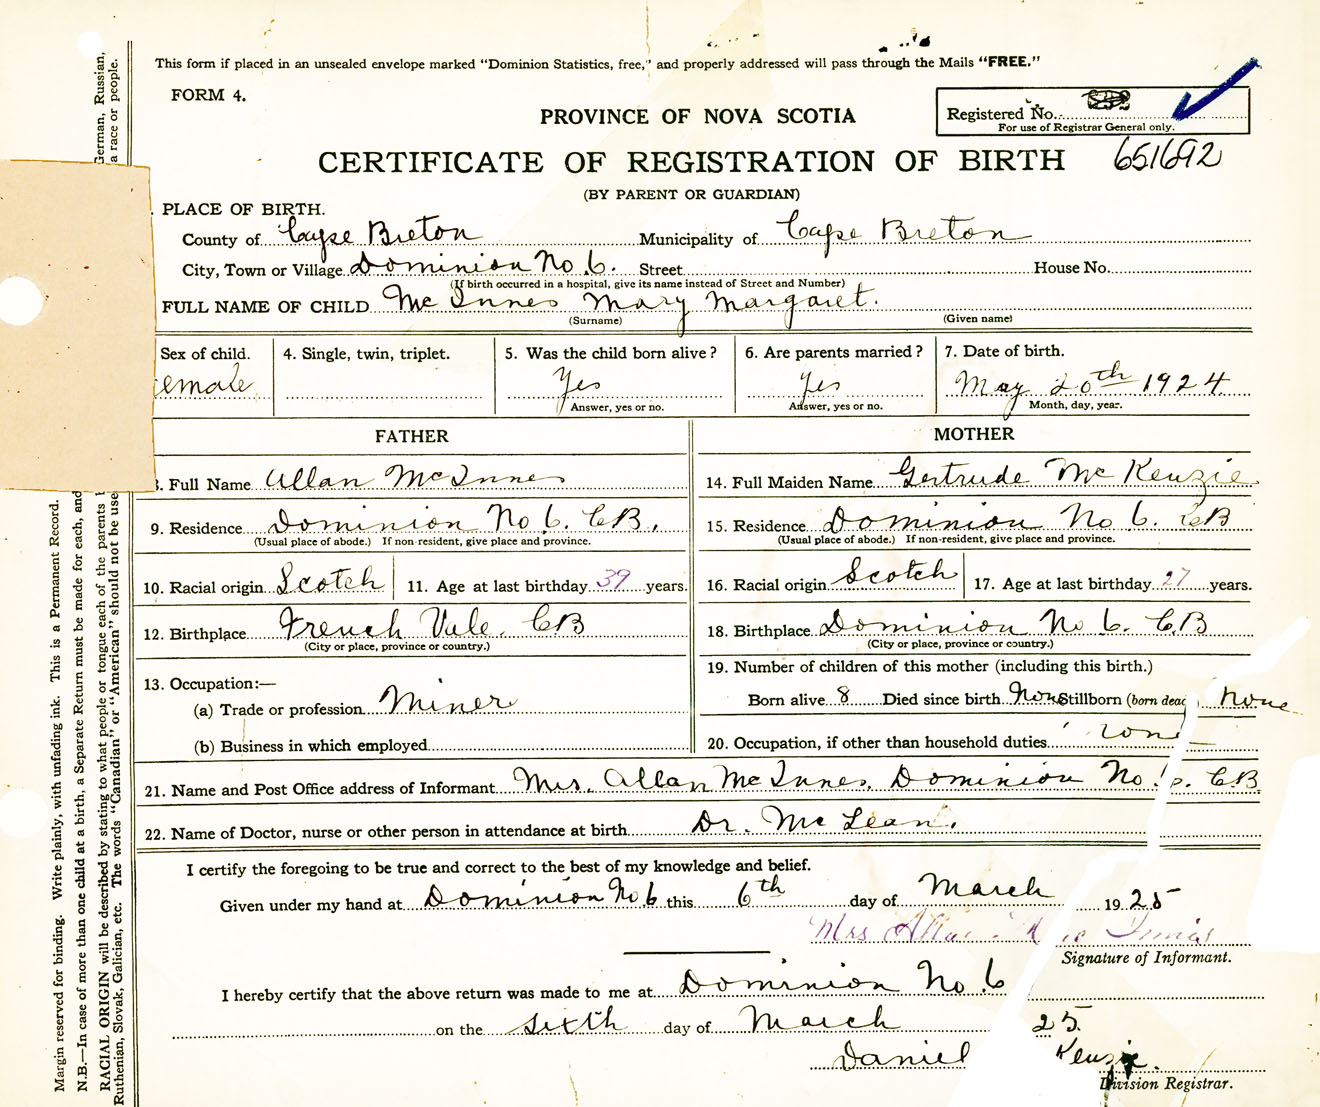 This form if placed in an unsealed envelope marked "Dominion Statistics, free," and properly addressed will pass through the Mails "FREE."
FORM 4.
PROVINCE OF NOVA SCOTIA
Registered No.
For use of Registrar General only.
CERTIFICATE OF REGISTRATION OF BIRTH 651692
(BY PARENT OR GUARDIAN)
PLACE OF BIRTH.
County of Cape Breton Municipality of Cape Breton
City, Town or Village Dominion No 6. Street House No.
(If birth occurred in a hospital, give its name instead of Street and Number)
FULL NAME OF CHILD McInnes Mary Margaret.
(Surname) (Given name)
Sex of child. 4. Single, twin, triplet. 5. Was the child born alive? 6. Are parents married? 7. Date of birth.
emale Yes Yes May 20th 1924
Answer, yes or no. Answer, yes or no. Month, day, year.
FATHER MOTHER
8. Full Name Allan McInnes 14. Full Maiden Name Gertrude McKenzie
9. Residence Dominion No 6. CB. 15. Residence Dominion No 6. CB
(Usual place of abode.) If non-resident, give place and province. (Usual place of abode.) If non-resident, give place and province.
10. Racial origin Scotch 11. Age at last birthday 39 years. 16. Racial origin Scotch 17. Age at last birthday 27 years.
12. Birthplace French Vale. CB 18. Birthplace Dominion No 6. C.B
(City or place, province or country.) (City or place, province or country.)
19. Number of children of this mother (including this birth.)
13. Occupation:—
(a) Trade or profession Miner Born alive 8 Died since birth None Stillborn (born dead) None
(b) Business in which employed 20. Occupation, if other than household duties
21. Name and Post Office address of Informant Mrs. Allan McInnes. Dominion No 6. CB.
22. Name of Doctor, nurse or other person in attendance at birth Dr. McLean.
I certify the foregoing to be true and correct to the best of my knowledge and belief.
Given under my hand at Dominion No 6 this 6th day of March 1925
Mrs Allan
Signature of Informant.
I hereby certify that the above return was made to me at Dominion No. 6
on the sixth day of March 25.
Daniel Kenzie.
Division Registrar.
Margin reserved for binding. Write plainly, with unfading ink. This is a Permanent Record.
N.B.—In case of more than one child at a birth, a Separate Return must be made for each, and
RACIAL ORIGIN will be described by stating to what people or tongue each of the parents German, Russian,
Ruthenian, Slovak, Galician, etc. The words "Canadian" or "American" should not be use a race or people.